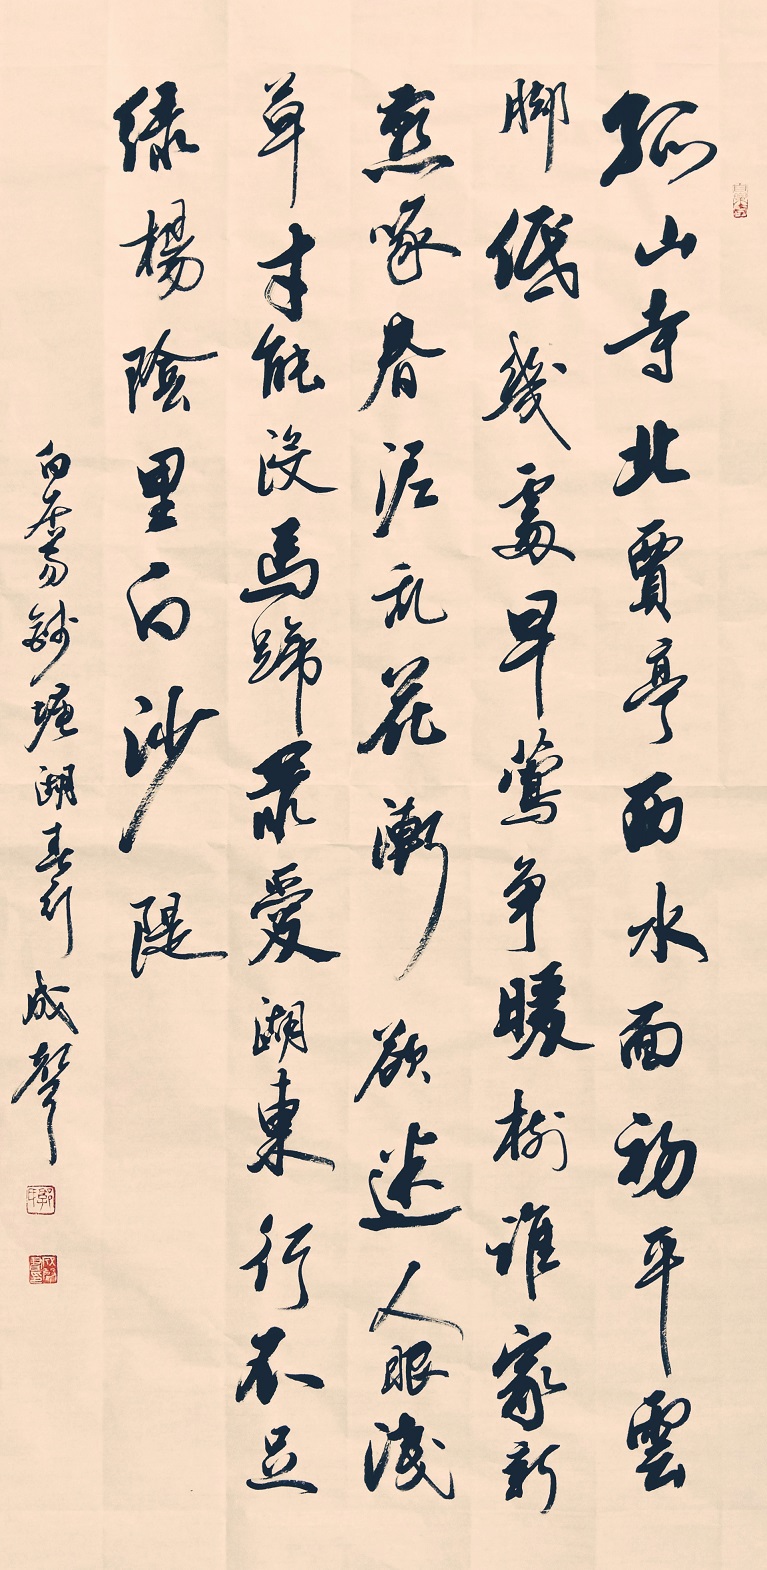 孤山寺北賈亭西水面初平雲
脚低幾處早莺争暖樹谁家新
燕啄春泥乱花漸欲迷人眼浅
草才能没馬蹄最爱湖東行不足
绿楊陰里白沙隄
白居易錢塘湖春行 成聲